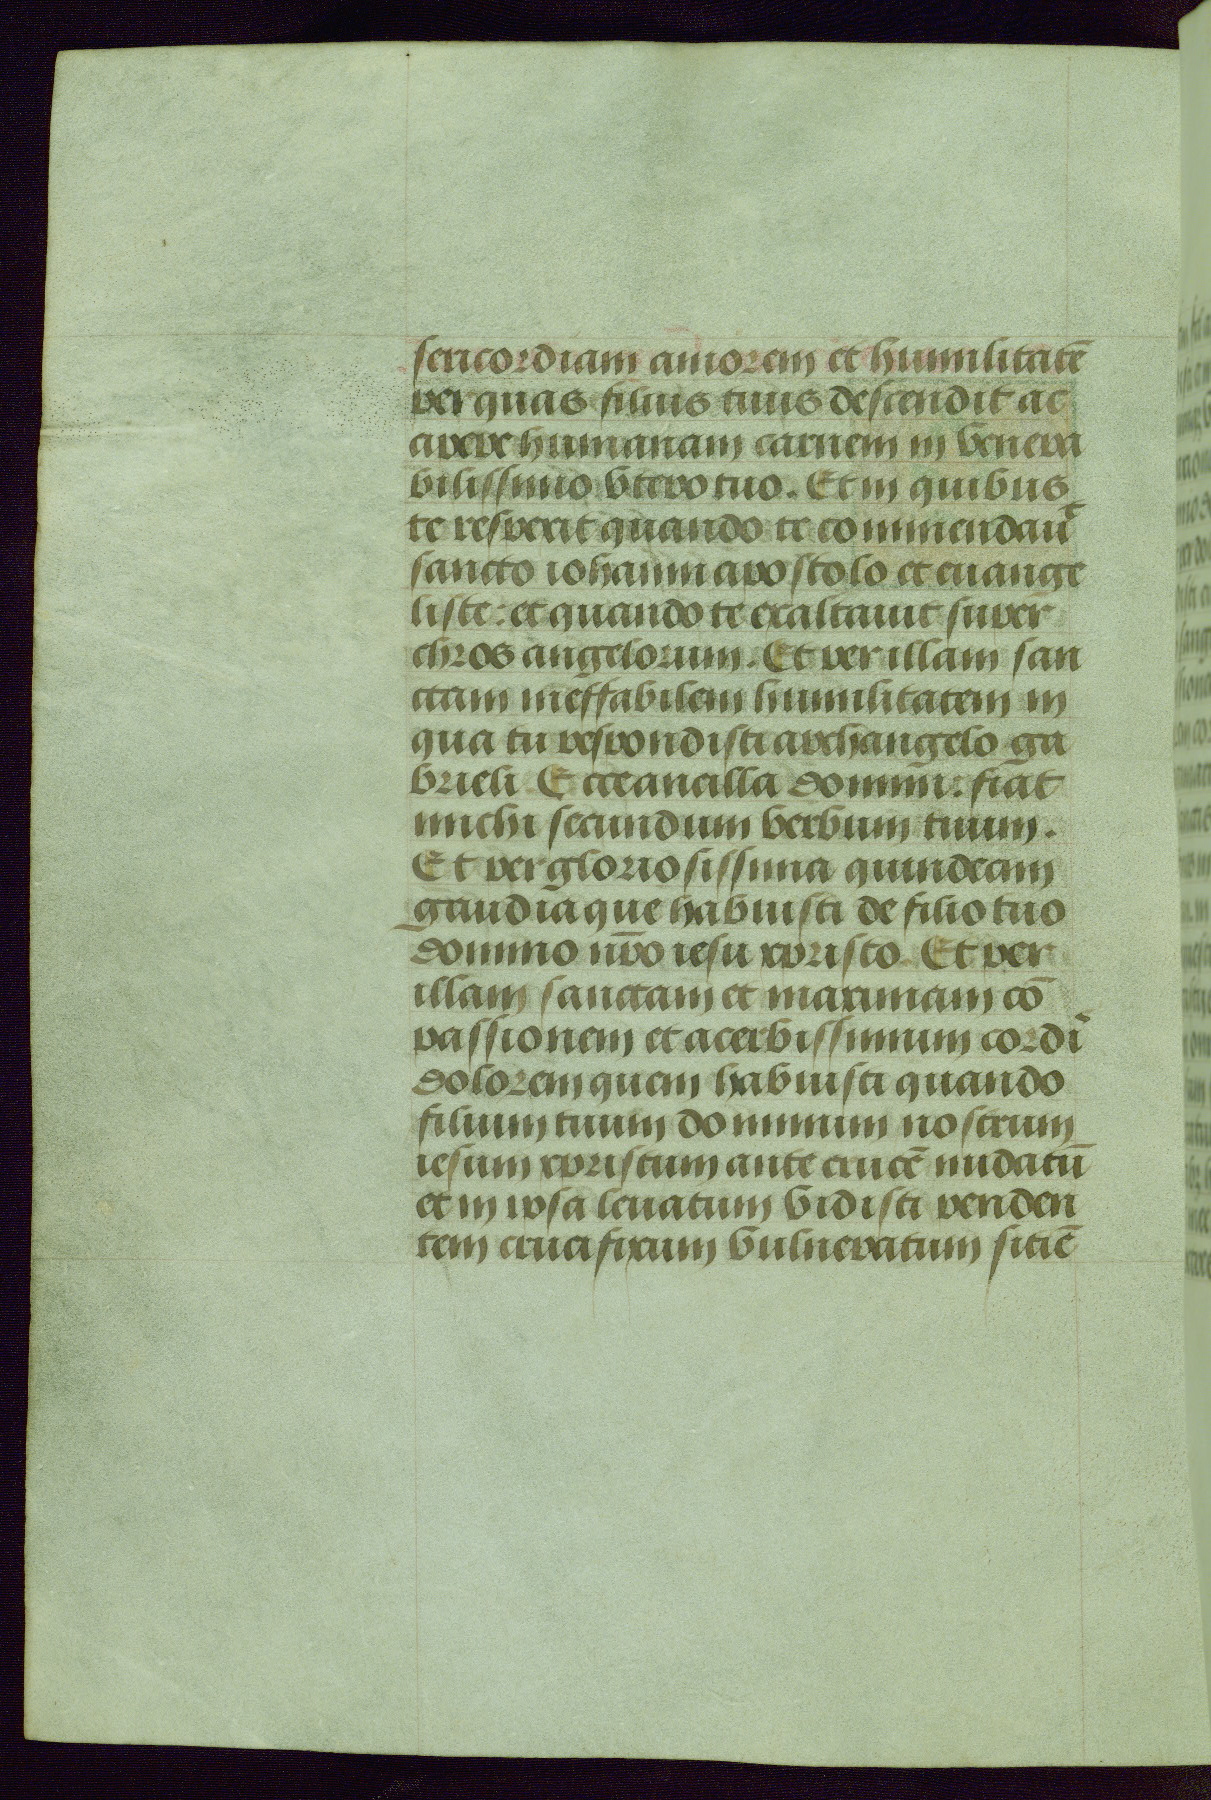 sericordiam amorem et humilitatē
per quas filius tuus descendit ac
cipere humanam carnem in venera
bilissimo vtero tuo. Et in quibus
te respexit quando te commendauı̃
sancto iohanni apostolo et euange
liste: et quando te exaltauit super
chros angelorum. Et per illam san
ctam ineffabilem humilitatem in
qua tu respondisti archangelo ga
brieli Ecce ancilla domini: fiat
michi secundum verbum tuum.
Et per gloriosissima quindecim
gaudia que habuisti de filio tuo
domino nr̄o iesu xpristo. Et per
illam sanctam et maximam cō
passionem et acerbissimum cordı̃
dolorem quem habuisti quando
filium tuum dominum nostrum
iesum xpristum ante crucē nudatū
et in ipsa leuatum vidisti penden
tem crucifixum vulneratum sitiē